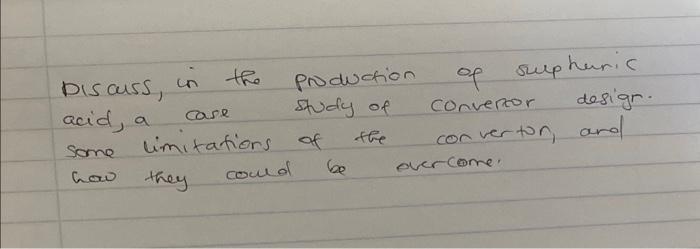 Discuss, in the production of sulphuric
acid, a case study of convertor design.
some limitations of the convertor, and
how they could be overcome.